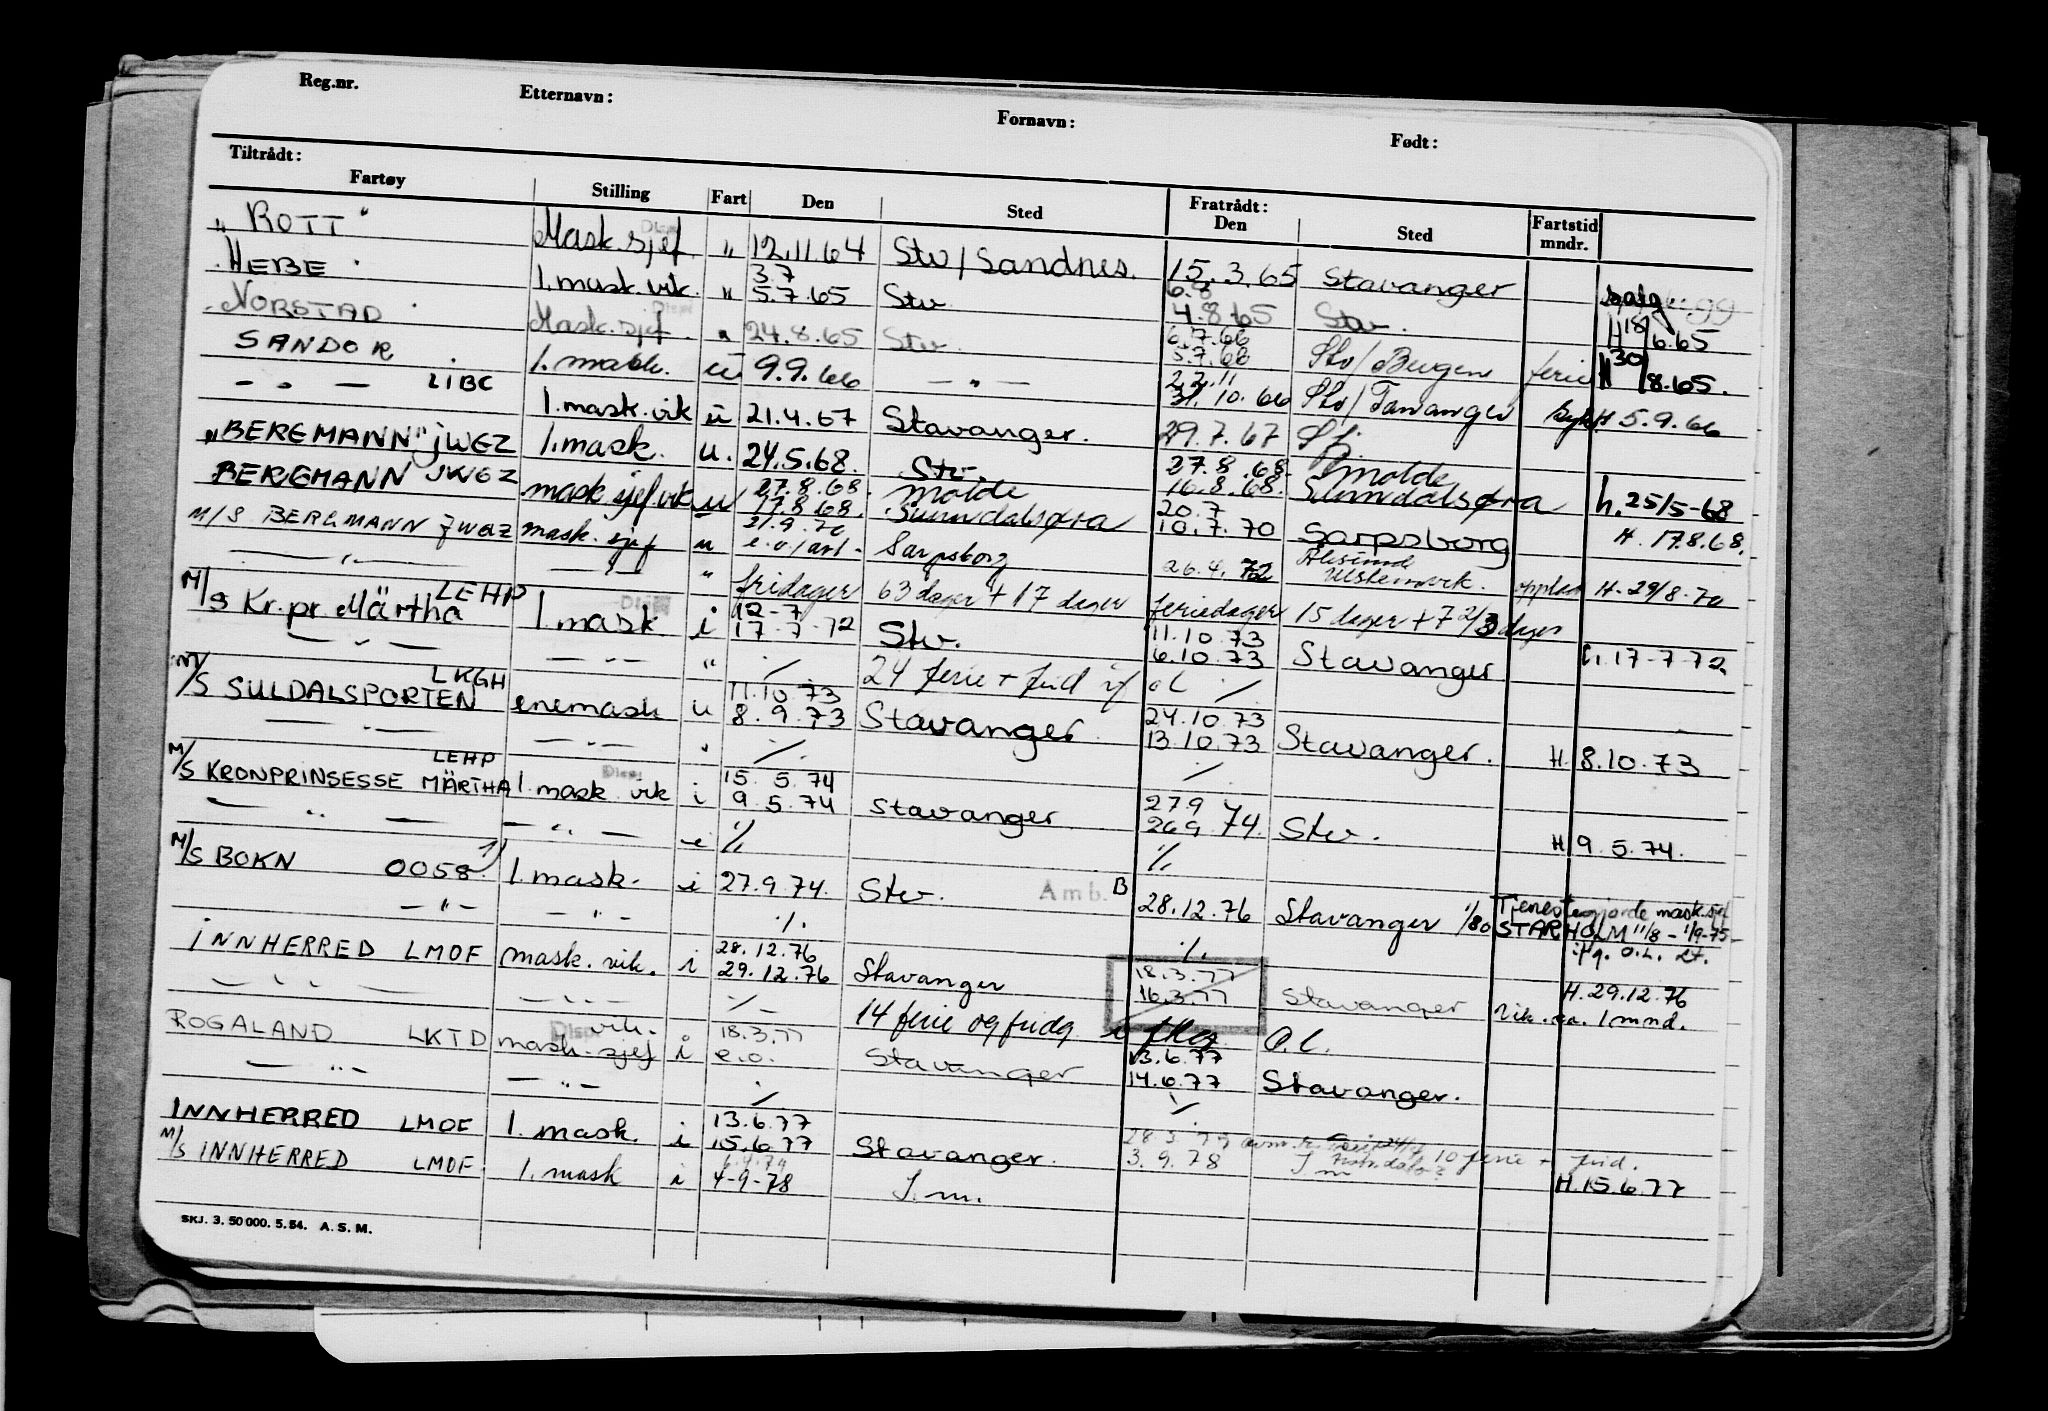 Reg.nr. Etternavn: Fornavn: Født:
Tiltrådt: Fratrådt:
Fartøy Stilling Fart Den Sted Den Sted Fartstid mndr.
"ROTT" Mask.sjef " 12.11.64 Stv/Sandnes. 15.3.65 Stavanger
HEBE 1.mask.vik. " 3.7 5.7.65 Stv 6.8 4.8.65 Stv. H 18/6.65
NORSTAD Mask.sjef " 24.8.65 Stv 6.7.66 5.7.66 Stv/Bergen ferie H 30/8.65.
SANDOR 1. mask. u 9.9.66 — " — 2.2.11 31.10.66 Stv/Tananger H 5.9.66
— " — LIBC 1.mask.vik u 21.4.67 Stavanger. 29.7.67
"BERGMANN" JWGZ 1.mask. u. 24.5.68. Stv. 27.8.68. 16.8.68. Molde Sunndalsøra h. 25/5-68
BERGMANN JWGZ mask sjef vik u 27.8.68. 17.8.68. Molde Sunndalsøra 20.7 10.7.70 Sarpsborg H. 17.8.68.
M/S BERGMANN JWGZ mask. sjef u 21.9.70 Sarpsborg 6.4.72 Ålesund Ulsteinvik. H. 29/8-70
— " — — " — " fridager 63 dager + 17 dager feriedager 15 dager + 7 2/3 dager
M/S Kr.pr. Märtha LEHP 1.mask i 12-7 17-7-72 Stv. 11.10.73 6.10.73 Stavanger h. 17-7-72
— " — — " — " ./. 24 ferie + frid if OL ./.
M/S SULDALSPORTEN LKGH enemask u 11.10.73 8.9.73 Stavanger 24.10.73 13.10.73 Stavanger. H. 8.10.73
— " — — " — " ./. ./.
M/S KRONPRINSESSE MÄRTHA LEHP 1.mask vik i 15.5.74 9.5.74 Stavanger 27.9 26.9.74. Stv. H 9.5.74.
— " — — " — i ./. ./.
M/S BOKN 0058 1) 1.mask. i 27.9.74. Stv. Amb. B 28.12.76 Stavanger Tjenestegjorde mask.sjef
— " — — " — ./. ./. 1/80 STARHOLM 11/8 - 1/9-75 ifg. O.L. 27.
INNHERRED LMOF mask. vik. i 28.12.76 29.12.76 Stavanger 18.3.77 16.3.77 Stavanger H. 29.12.76 vik. ca. 1 mnd.
— " — — " — ./. 14 ferie og fridg i flg O.L.
ROGALAND LKTD mask. sjef vik. i 18.3.77 e.o. Stavanger 13.6.77 14.6.77 Stavanger.
— " — — " — ./. ./.
INNHERRED LMOF 1. mask. i 13.6.77 15.6.77 Stavanger. 10 ferie + frid. H. 15.6.77
M/S INNHERRED LMOF. 1. mask i 4-9-78 S.m. 3.9.78 S m
SKJ. 3. 50 000. 5.54. A. S. M.